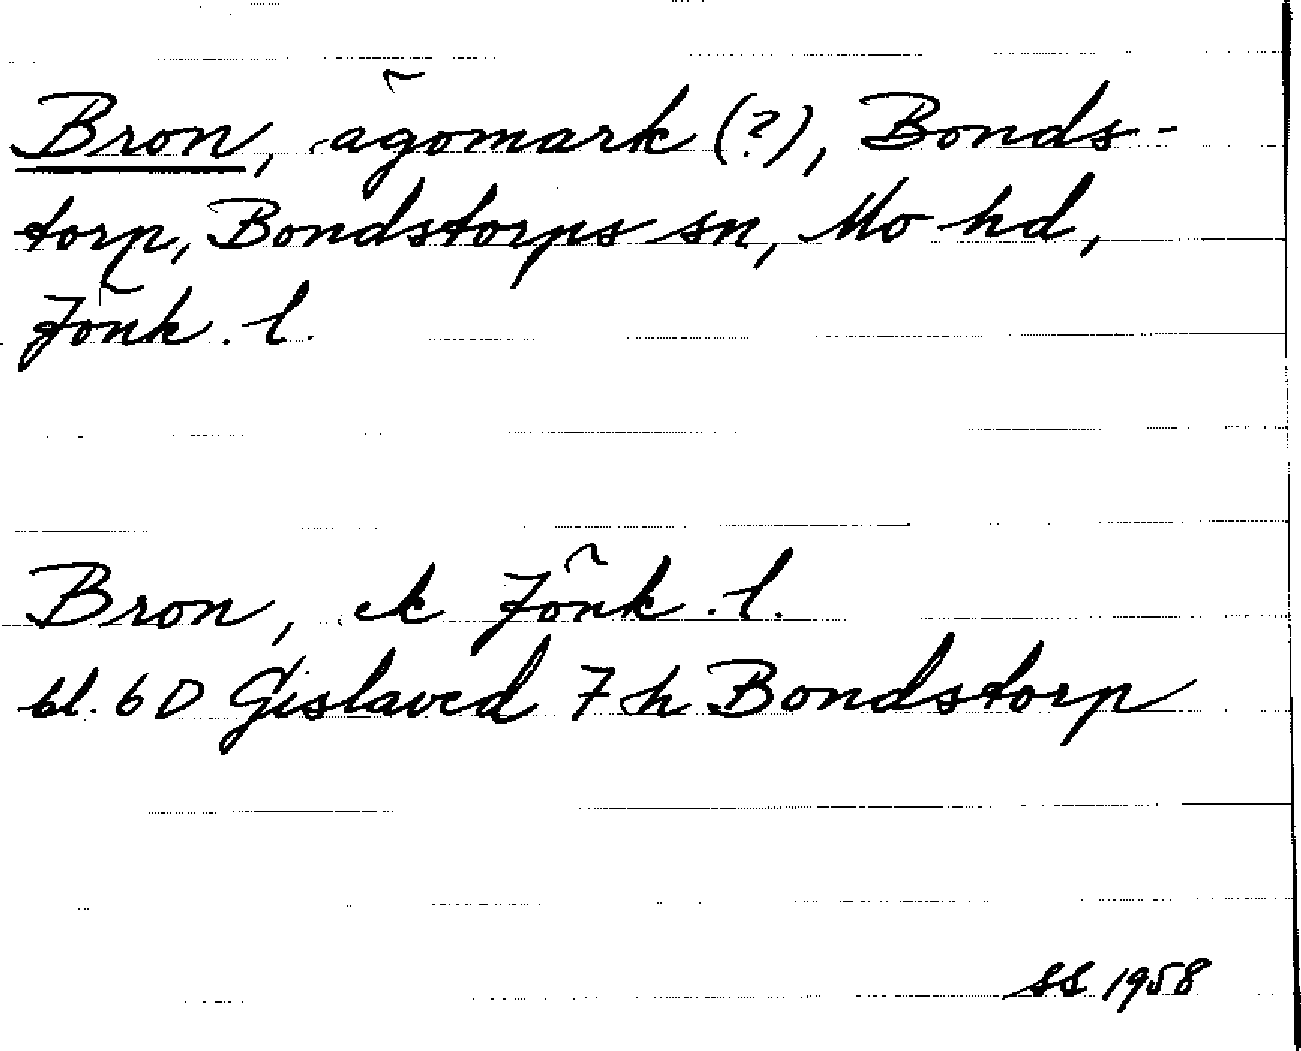 Bron, ägomark (?), Bonds-
torp, Bondstorps sn, Mo hd,
Jönk. l.
Bron, ek Jönk. l.
bl. 6D Gislaved 7h Bondstorp
SS 1958